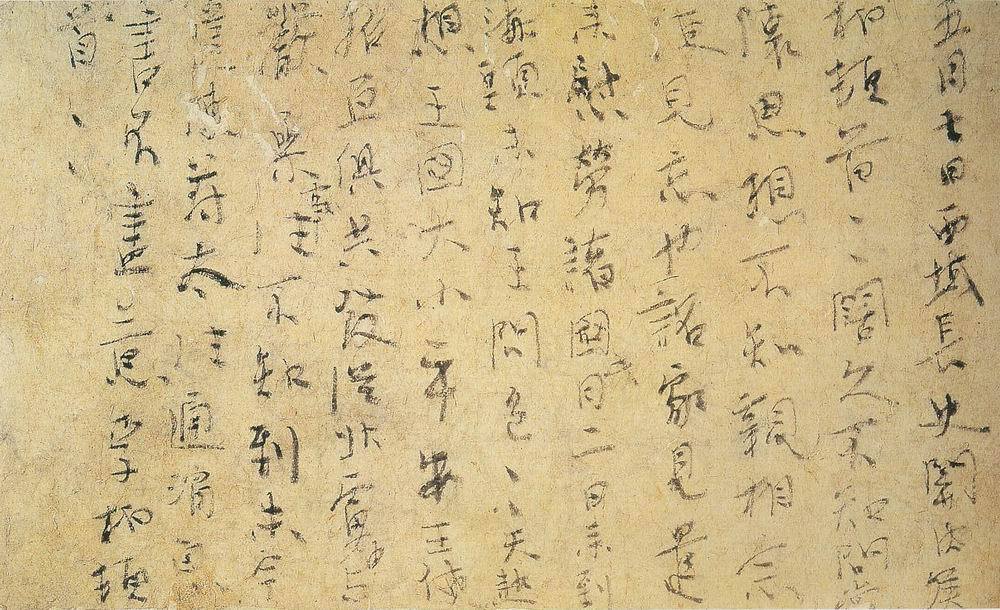 五月七日西域長史關內侯
柏頓首、、闊久不知問常
懷思想不知親相念
便見忘也詔家見遣
來慰勞諸國月二日來到
海頭未知王問邑、、天熱
想王國大小平安王使
招亘俱共發從北虜与
嚴參事往不知到未今
遣使符太往通消息
書不盡意李柏頓
首、、